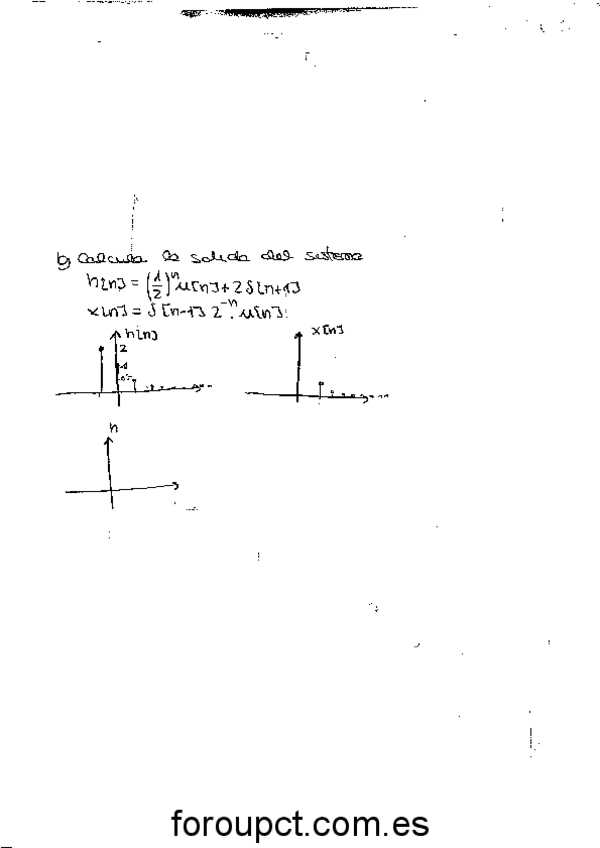 b) Calcula la salida del sistema
h[n] = (1/2)^n u[n] + 2 δ[n+1]
x[n] = δ[n-1] 2^-n · u[n]
h[n] x[n]
2
1
h
foroupct.com.es